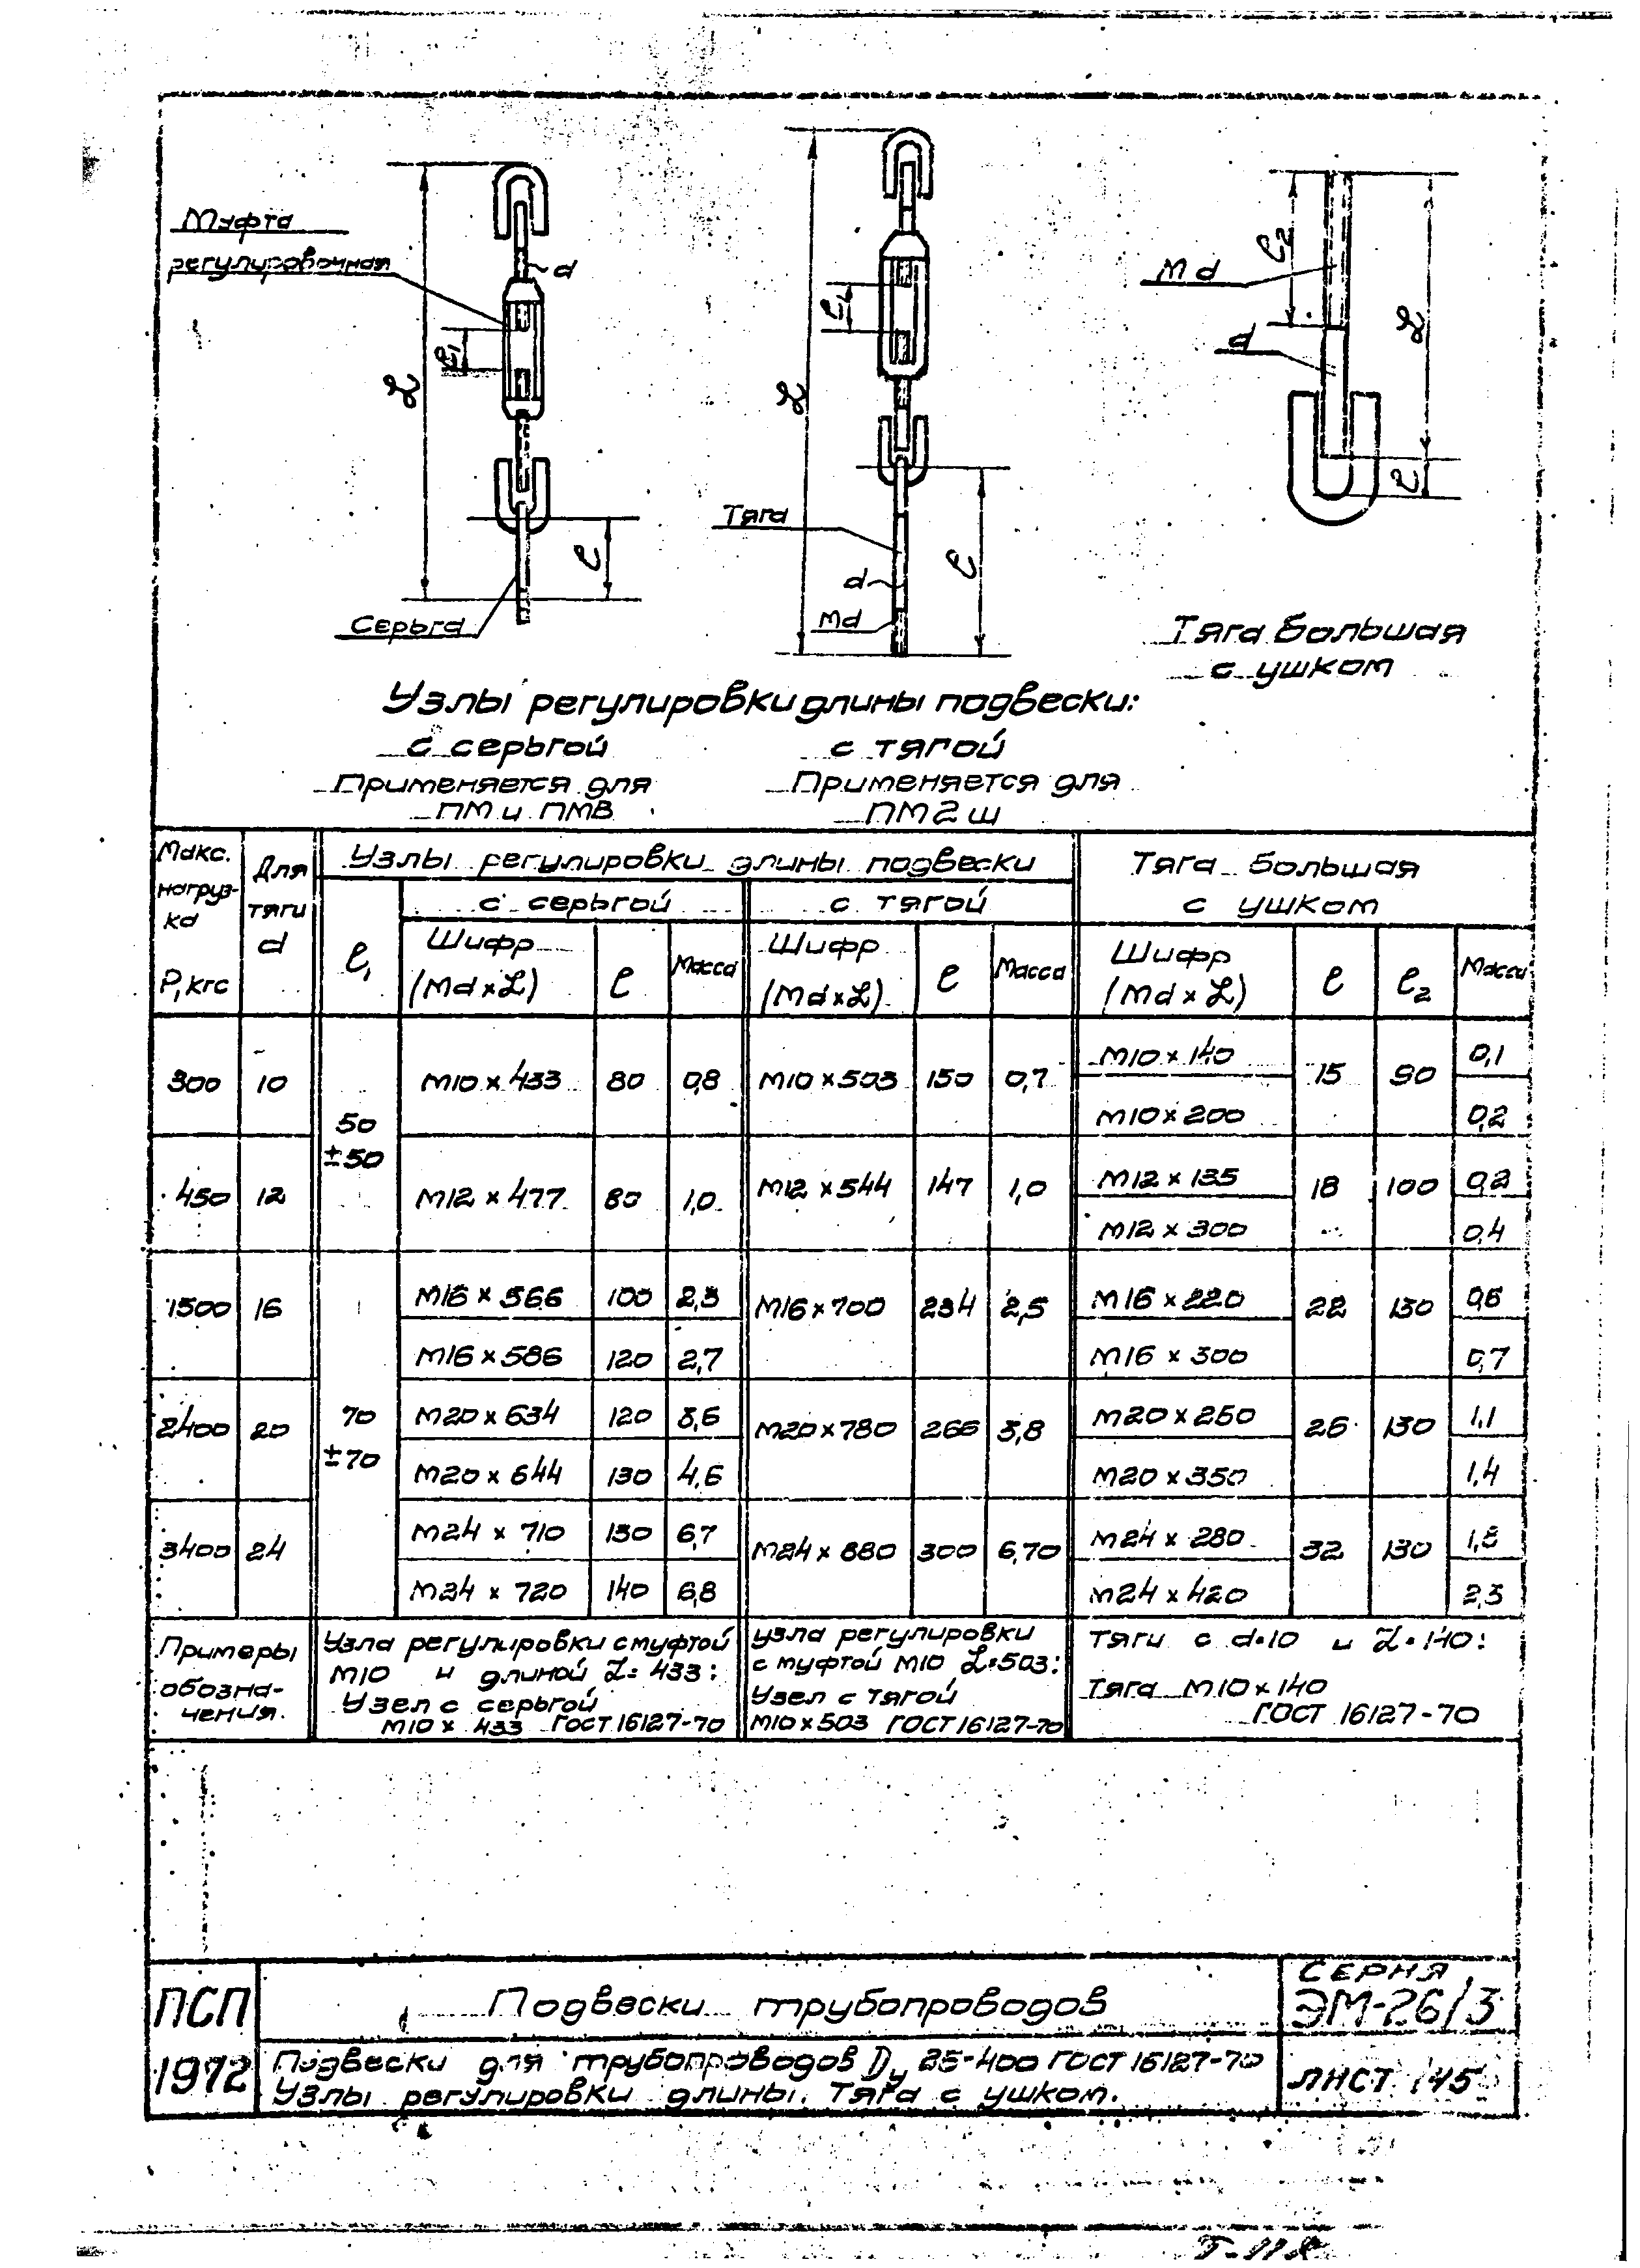 Муфта
регулировочная
d
ℓ₁
L
ℓ
Серьга
L
ℓ₁
Тяга
d
Md
ℓ
ℓ₂
Md
d
L
ℓ
Тяга большая
с ушком
Узлы регулировки длины подвески:
с серьгой
с тягой
Применяется для
ПМ и ПМВ
Применяется для
ПМ2ш
Макс. нагруз-ка P, кгс
Для тяги d
Узлы регулировки длины подвески
Тяга большая с ушком
с серьгой
с тягой
ℓ₁ Шифр (Md×L) ℓ Масса Шифр (Md×L) ℓ Масса Шифр (Md×L) ℓ ℓ₂ Масса
300 10 50 ±50 М10×433 80 0,8 М10×503 150 0,7 М10×140 15 90 0,1
М10×200 0,2
450 12 М12×477 80 1,0 М12×544 147 1,0 М12×135 18 100 0,2
М12×300 0,4
1500 16 М16×566 100 2,3 М16×700 234 2,5 М16×220 22 130 0,6
М16×586 120 2,7 М16×300 0,7
2400 20 70 ±70 М20×634 120 3,6 М20×780 266 3,8 М20×250 26 130 1,1
М20×644 130 4,6 М20×350 1,4
3400 24 М24×710 130 6,7 М24×880 300 6,70 М24×280 32 130 1,8
М24×720 140 6,8 М24×420 2,3
Примеры
обозна-
чения.
Узла регулировки с муфтой
М10 и длиной L=433:
Узел с серьгой
М10×433 ГОСТ 16127-70
узла регулировки
с муфтой М10 L=503:
Узел с тягой
М10×503 ГОСТ 16127-70
тяги с d=10 и L=140:
Тяга М10×140
ГОСТ 16127-70
ПСП
1972
Подвески трубопроводов
Подвески для трубопроводов Dу 25-400 ГОСТ 16127-70
Узлы регулировки длины. Тяга с ушком.
СЕРИЯ
ЭМ-26/3
ЛИСТ 145